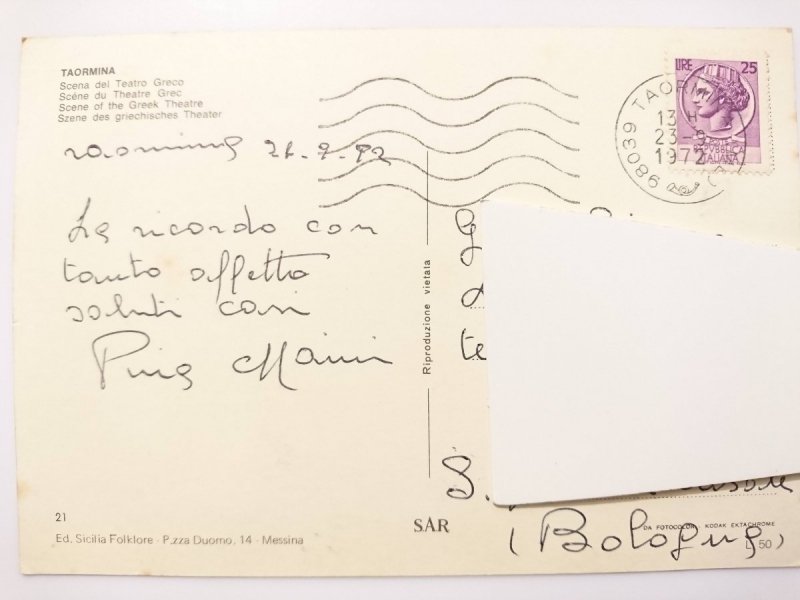 TAORMINA
Scena del Teatro Greco
Scéne du Theatre Grec
Scene of the Greek Theatre
Szene des griechisches Theater
Taormina
La ricordo con
tanto affetto
saluti cari
Riproduzione vietata
LIRE 25
98039 TAORMINA
13 H
23 9
1972
REPUBBLICA
ITALIANA
S.
(Bologna)
21
Ed. Sicilia Folklore - P.zza Duomo, 14 - Messina
SAR
DA FOTOCOLOR KODAK EKTACHROME
L. 50